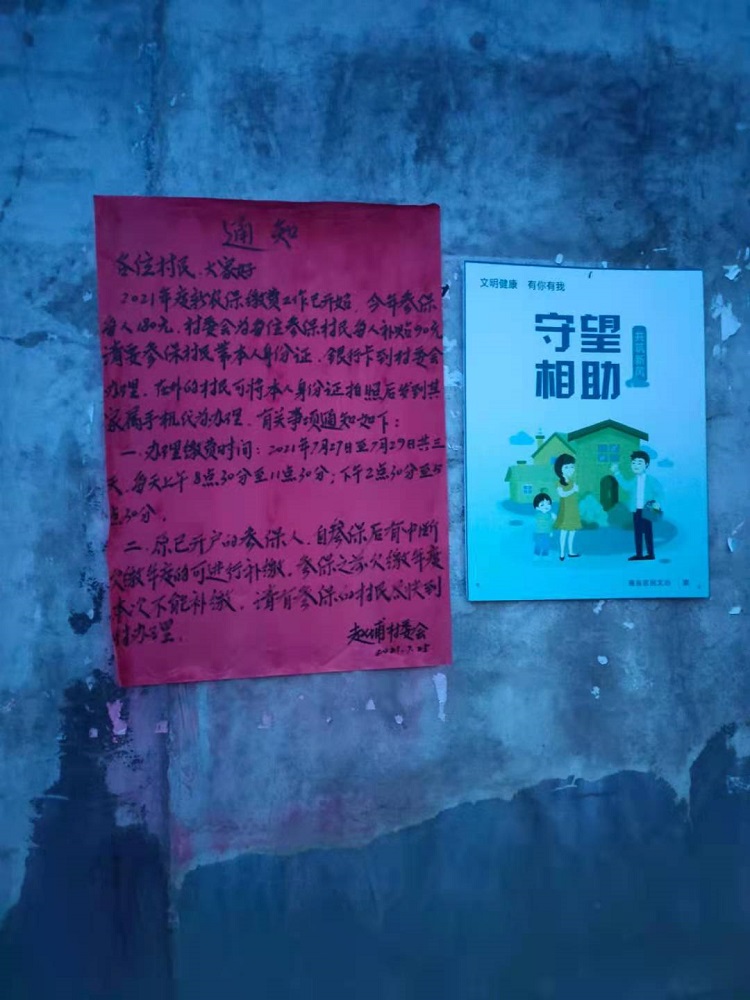 通知
各位村民、大家好
2021年度新农保缴费工作已开始，今年参保
每人180元，村委会为每位参保村民每人补贴90元
请要参保村民带本人身份证、银行卡到村委会
办理。在外的村民可将本人身份证拍照后发到其
家属手机代为办理。有关事项通知如下：
一、办理缴费时间：2021年7月27日至7月29日共三
天，每天上午8点30分至11点30分；下午2点30分至5
点30分。
二、原已开户的参保人，自参保后有中断
欠缴年度的可进行补缴。参保之前欠缴年度
本次不能补缴。请有参保的村民尽快到
村办理。
赵埔村委会
2021.7.25
文明健康 有你有我
守望
相助
共筑新风